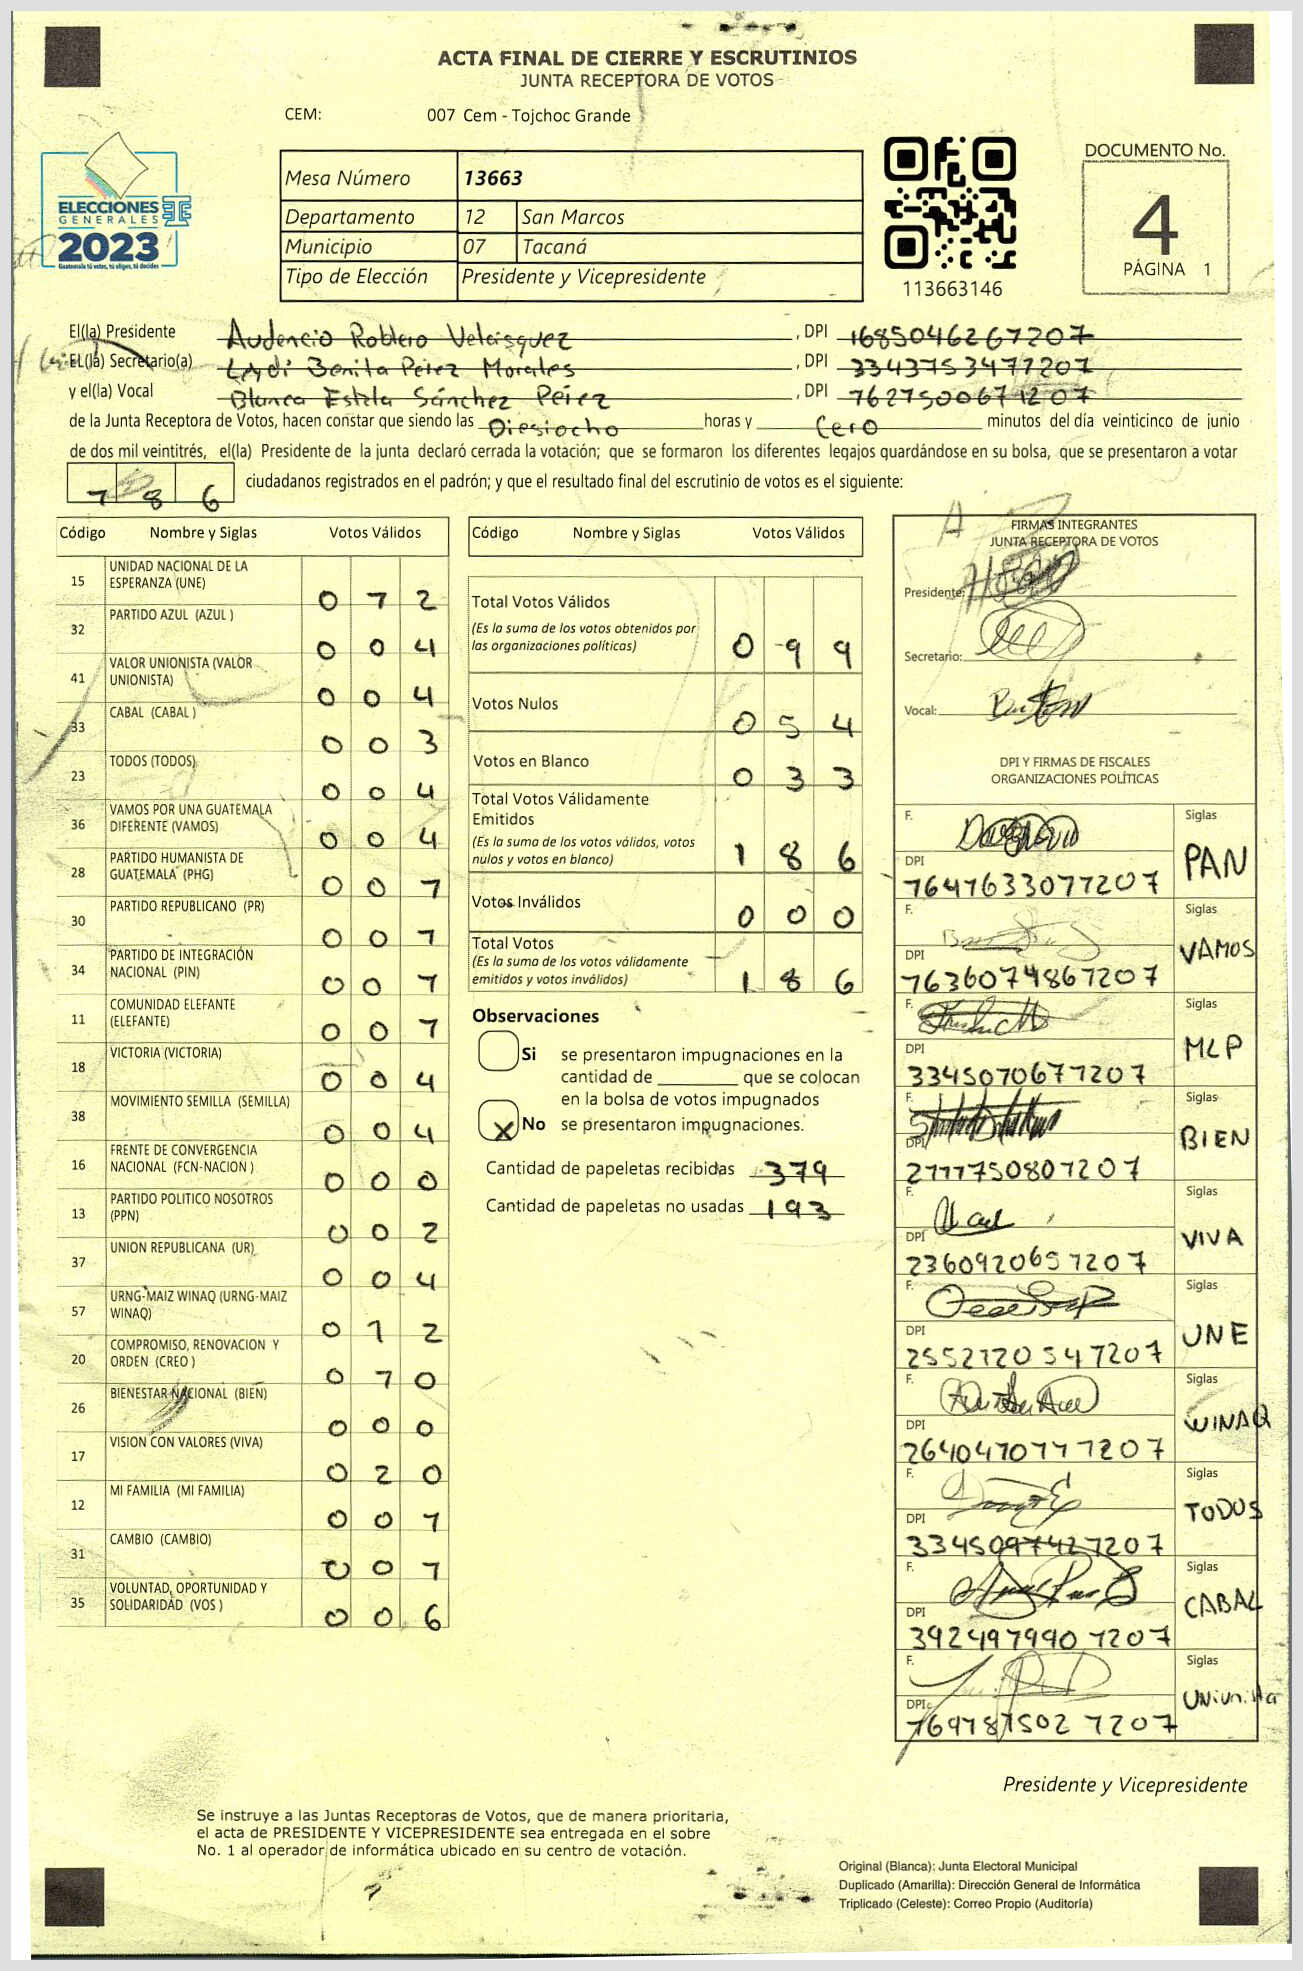 ACTA FINAL DE CIERRE Y ESCRUTINIOS
JUNTA RECEPTORA DE VOTOS
CEM: 007 Cem - Tojchoc Grande
ELECCIONES
GENERALES
2023
Guatemala tú votas, tú eliges, tú decides
Mesa Número 13663
Departamento 12 San Marcos
Municipio 07 Tacaná
Tipo de Elección Presidente y Vicepresidente
113663146
DOCUMENTO No.
4
PÁGINA 1
El(la) Presidente Audencio Roblero Velásquez, DPI 1685046261207
EL(lá) Secretario(a) Benita Pérez Morales, DPI
y el(la) Vocal Blanca Estela Sánchez Pérez, DPI
de la Junta Receptora de Votos, hacen constar que siendo las Diesiocho horas y Cero minutos del día veinticinco de junio
de dos mil veintitrés, el(la) Presidente de la junta declaró cerrada la votación; que se formaron los diferentes legajos guardándose en su bolsa, que se presentaron a votar
186 ciudadanos registrados en el padrón; y que el resultado final del escrutinio de votos es el siguiente:
Código Nombre y Siglas Votos Válidos
15 UNIDAD NACIONAL DE LA
ESPERANZA (UNE) 0 1 2
32 PARTIDO AZUL (AZUL ) 0 0 4
41 VALOR UNIONISTA (VALOR
UNIONISTA) 0 0 4
33 CABAL (CABAL ) 0 0 3
23 TODOS (TODOS) 0 0 4
36 VAMOS POR UNA GUATEMALA
DIFERENTE (VAMOS) 0 0 4
28 PARTIDO HUMANISTA DE
GUATEMALA (PHG) 0 0 1
30 PARTIDO REPUBLICANO (PR) 0 0 1
34 PARTIDO DE INTEGRACIÓN
NACIONAL (PIN) 0 0 1
11 COMUNIDAD ELEFANTE
(ELEFANTE) 0 0 1
18 VICTORIA (VICTORIA) 0 0 4
38 MOVIMIENTO SEMILLA (SEMILLA) 0 0 4
16 FRENTE DE CONVERGENCIA
NACIONAL (FCN-NACION ) 0 0 0
13 PARTIDO POLITICO NOSOTROS
(PPN) 0 0 2
37 UNION REPUBLICANA (UR) 0 0 4
57 URNG-MAIZ WINAQ (URNG-MAIZ
WINAQ) 0 1 2
20 COMPROMISO, RENOVACION Y
ORDEN (CREO ) 0 1 0
26 BIENESTAR NACIONAL (BIEN) 0 0 0
17 VISION CON VALORES (VIVA) 0 2 0
12 MI FAMILIA (MI FAMILIA) 0 0 1
31 CAMBIO (CAMBIO) 0 0 1
35 VOLUNTAD, OPORTUNIDAD Y
SOLIDARIDAD (VOS ) 0 0 6
Código Nombre y Siglas Votos Válidos
Total Votos Válidos
(Es la suma de los votos obtenidos por
las organizaciones políticas) 0 9 9
Votos Nulos 0 5 4
Votos en Blanco 0 3 3
Total Votos Válidamente
Emitidos
(Es la suma de los votos válidos, votos
nulos y votos en blanco) 1 8 6
Votos Inválidos 0 0 0
Total Votos
(Es la suma de los votos válidamente
emitidos y votos inválidos) 1 8 6
Observaciones
Si se presentaron impugnaciones en la
cantidad de ________ que se colocan
en la bolsa de votos impugnados
X No se presentaron impugnaciones.
Cantidad de papeletas recibidas 379
Cantidad de papeletas no usadas 193
FIRMAS INTEGRANTES
JUNTA RECEPTORA DE VOTOS
Presidente:
Secretario:
Vocal:
DPI Y FIRMAS DE FISCALES
ORGANIZACIONES POLÍTICAS
F. Siglas
DPI PAN
F. Siglas
DPI VAMOS
F. Siglas
DPI MLP
F. Siglas
DPI BIEN
F. Siglas
DPI VIVA
2360920651207
F. Siglas
DPI UNE
F. Siglas
DPI WINAQ
F. Siglas
DPI TODOS
F. Siglas
DPI CABAL
F. Siglas
DPI Unionista
Presidente y Vicepresidente
Se instruye a las Juntas Receptoras de Votos, que de manera prioritaria,
el acta de PRESIDENTE Y VICEPRESIDENTE sea entregada en el sobre
No. 1 al operador de informática ubicado en su centro de votación.
Original (Blanca): Junta Electoral Municipal
Duplicado (Amarilla): Dirección General de Informática
Triplicado (Celeste): Correo Propio (Auditoría)